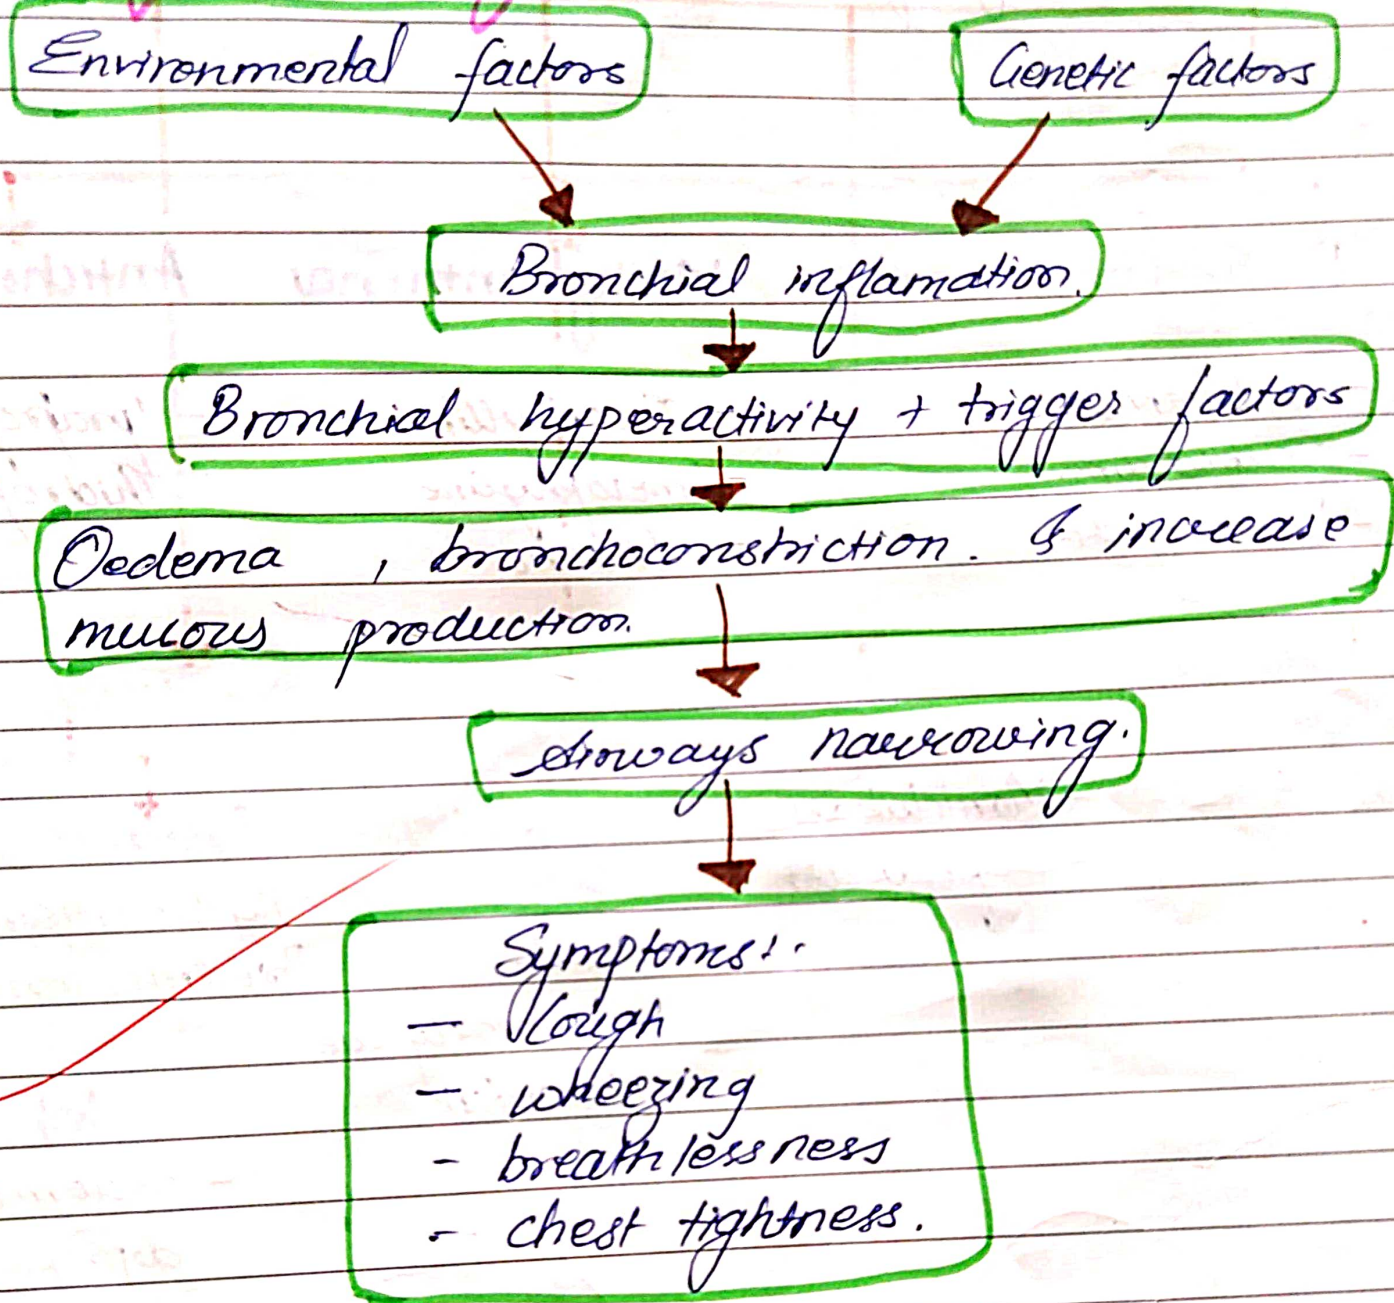 Environmental factors
Genetic factors
Bronchial inflamation.
Bronchial hyperactivity + trigger factors
Oedema , bronchoconstriction. & increase
mucous production.
Airways narrowing.
Symptoms:-
- Cough
- wheezing
- breathlessness
- chest tightness.